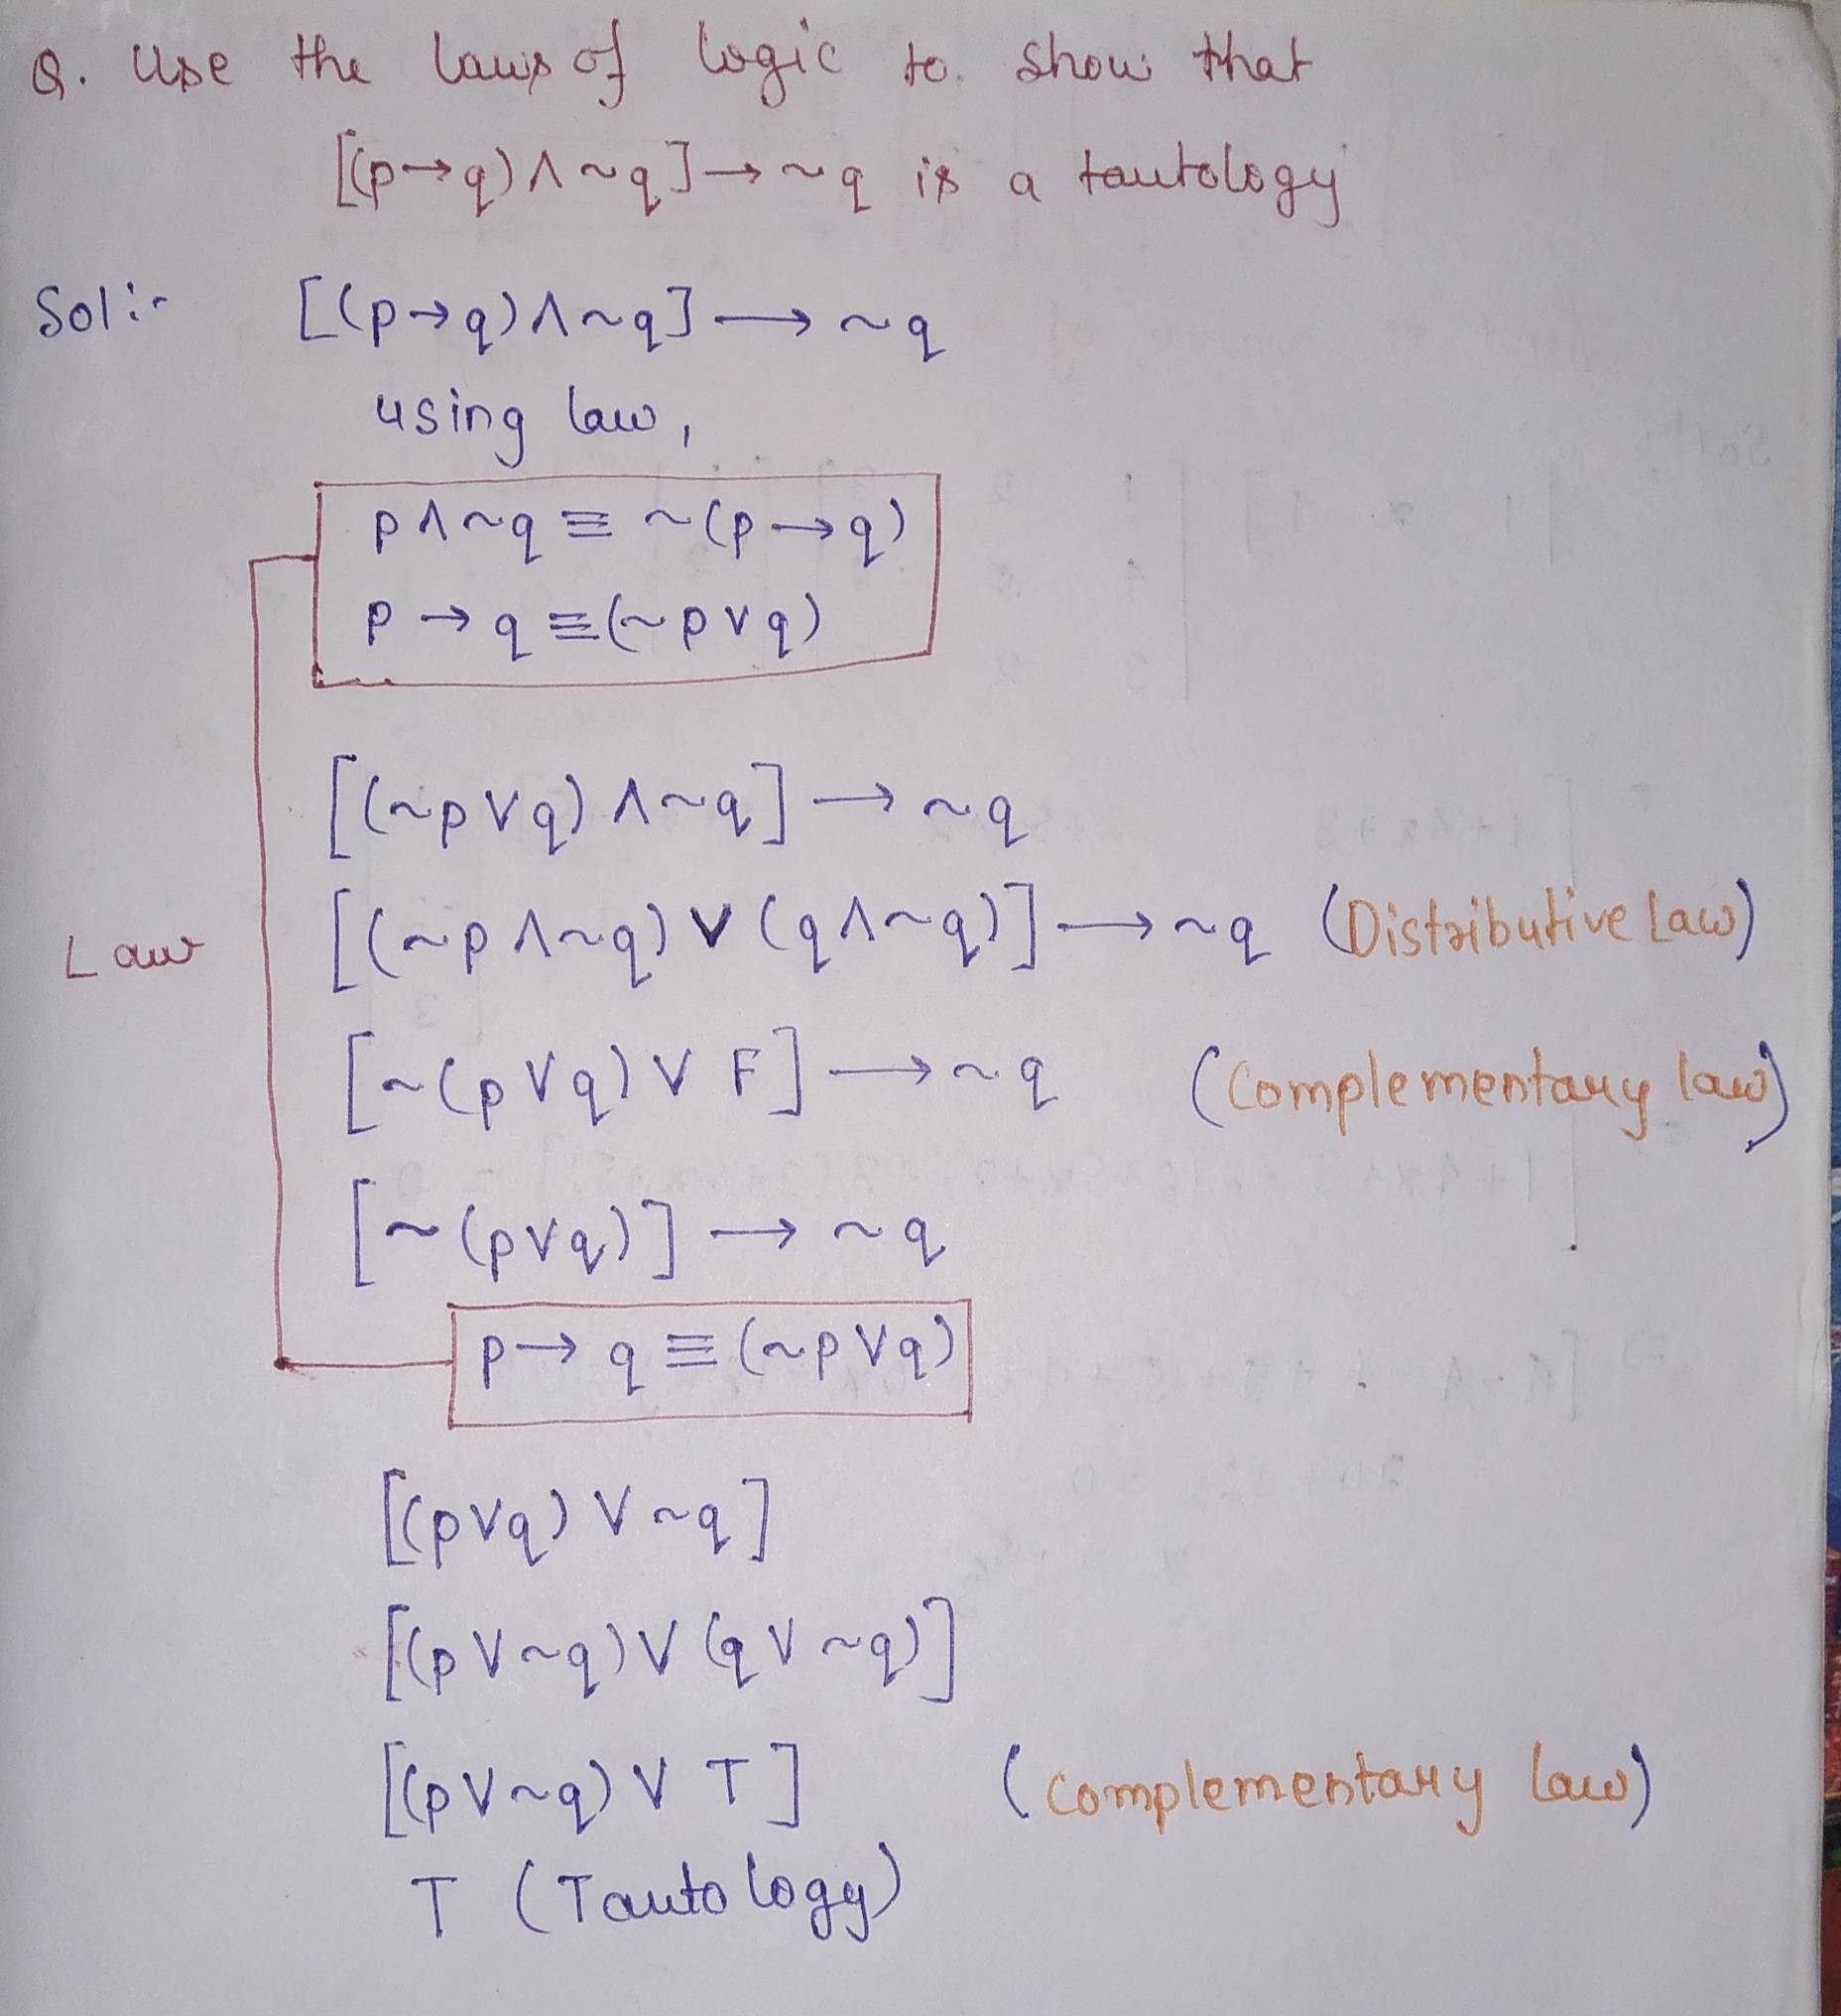 Q. Use the laws of logic to show that
[(p→q)∧~q]→~q is a tautology
Sol:- [(p→q)∧~q]→~q
using law,
p∧~q≡~(p→q)
p→q≡(~p∨q)
[(~p∨q)∧~q]→~q
Law [(~p∧~q)∨(q∧~q)]→~q (Distributive Law)
[~(p∨q)∨F]→~q (Complementary law)
[~(p∨q)]→~q
p→q≡(~p∨q)
[(p∨q)∨~q]
[(p∨~q)∨(q∨~q)]
[(p∨~q)∨T] (complementary law)
T (Tautology)